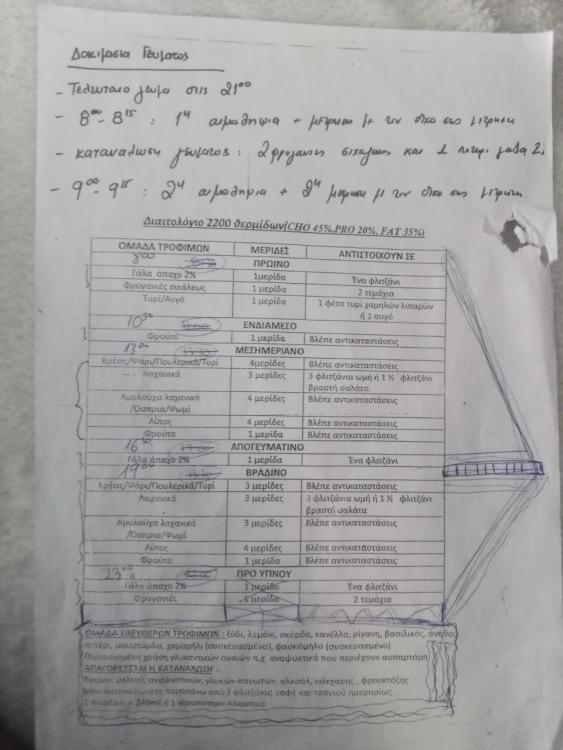 Δοκιμασία Γεύματος
- Τελευταίο γεύμα στις 21⁰⁰
- 8⁰⁰ - 8¹⁵ : 1η αιμοληψία + μέτρηση με τον δικό σας μετρητή
- κατανάλωση γεύματος : 2 φρυγανιές σικάλεως και 1 ποτήρι γάλα 2%
- 9⁰⁰ - 9¹⁵ : 2η αιμοληψία + 2η μέτρηση με τον δικό σας μετρητή
Διαιτολόγιο 2200 θερμίδων(CHO 45%,PRO 20%, FAT 35%)
ΟΜΑΔΑ ΤΡΟΦΙΜΩΝ ΜΕΡΙΔΕΣ ΑΝΤΙΣΤΟΙΧΟΥΝ ΣΕ
8⁰⁰ ΠΡΩΙΝΟ
Γάλα άπαχο 2% 1μερίδα Ένα φλιτζάνι
Φρυγανιές σικάλεως 1 μερίδα 2 τεμάχια
Τυρί/Αυγό 1 μερίδα 1 φέτα τυρί χαμηλών λιπαρών
ή 1 αυγό
10³⁰ ΕΝΔΙΑΜΕΣΟ
Φρούτο 1 μερίδα Βλέπε αντικαταστάσεις
13⁰⁰ ΜΕΣΗΜΕΡΙΑΝΟ
Κρέας/Ψάρι/Πουλερικά/Τυρί 4μερίδες Βλέπε αντικαταστάσεις
Λαχανικά 3 μερίδες 3 φλιτζάνια ωμή ή 1 ½ φλιτζάνι
βραστή σαλάτα
Αμυλούχα λαχανικά 4 μερίδες Βλέπε αντικαταστάσεις
/Όσπρια/Ψωμί
Λίπος 4 μερίδες Βλέπε αντικαταστάσεις
Φρούτο 1 μερίδα Βλέπε αντικαταστάσεις
16 ΑΠΟΓΕΥΜΑΤΙΝΟ
Γάλα άπαχο 2% 1 μερίδα Ένα φλιτζάνι
19⁰⁰ ΒΡΑΔΙΝΟ
Κρέας/Ψάρι/Πουλερικά/Τυρί 3 μερίδες Βλέπε αντικαταστάσεις
Λαχανικά 3 μερίδες 3 φλιτζάνια ωμή ή 1 ½ φλιτζάνι
βραστή σαλάτα
Αμυλούχα λαχανικά 3 μερίδες Βλέπε αντικαταστάσεις
/Όσπρια/Ψωμί
Λίπος 4 μερίδες Βλέπε αντικαταστάσεις
Φρούτο 1 μερίδα Βλέπε αντικαταστάσεις
23 ΠΡΟ ΥΠΝΟΥ
Γάλα άπαχο 2% 1 μερίδα Ένα φλιτζάνι
Φρυγανιές 1 μερίδα 2 τεμάχια
ΟΜΑΔΑ ΕΛΕΥΘΕΡΩΝ ΤΡΟΦΙΜΩΝ : ξύδι, λεμόνι, σκόρδο, κανέλλα, ρίγανη, βασιλικός, άνηθος
πιπέρι, μουστάρδα, χαμομήλι (συσκευασμένο), φασκόμηλο (συσκευασμένο)
Περιορισμένη χρήση γλυκαντικών ουσιών π.χ αναψυκτικά που περιέχουν ασπαρτάμη
ΑΠΑΓΟΡΕΥΕΤΑΙ Η ΚΑΤΑΝΑΛΩΣΗ
μελιού, αναψυκτικών, γλυκών-παγωτών, αλκοόλ, ζάχαρης , φρουκτόζης
καταναλώνετε περισσότερο από 2 φλιτζάνια καφέ και τσαγιού ημερησίως
1 φλιτζάνι = 240ml ή 1 νεροπότηρο πλαστικό